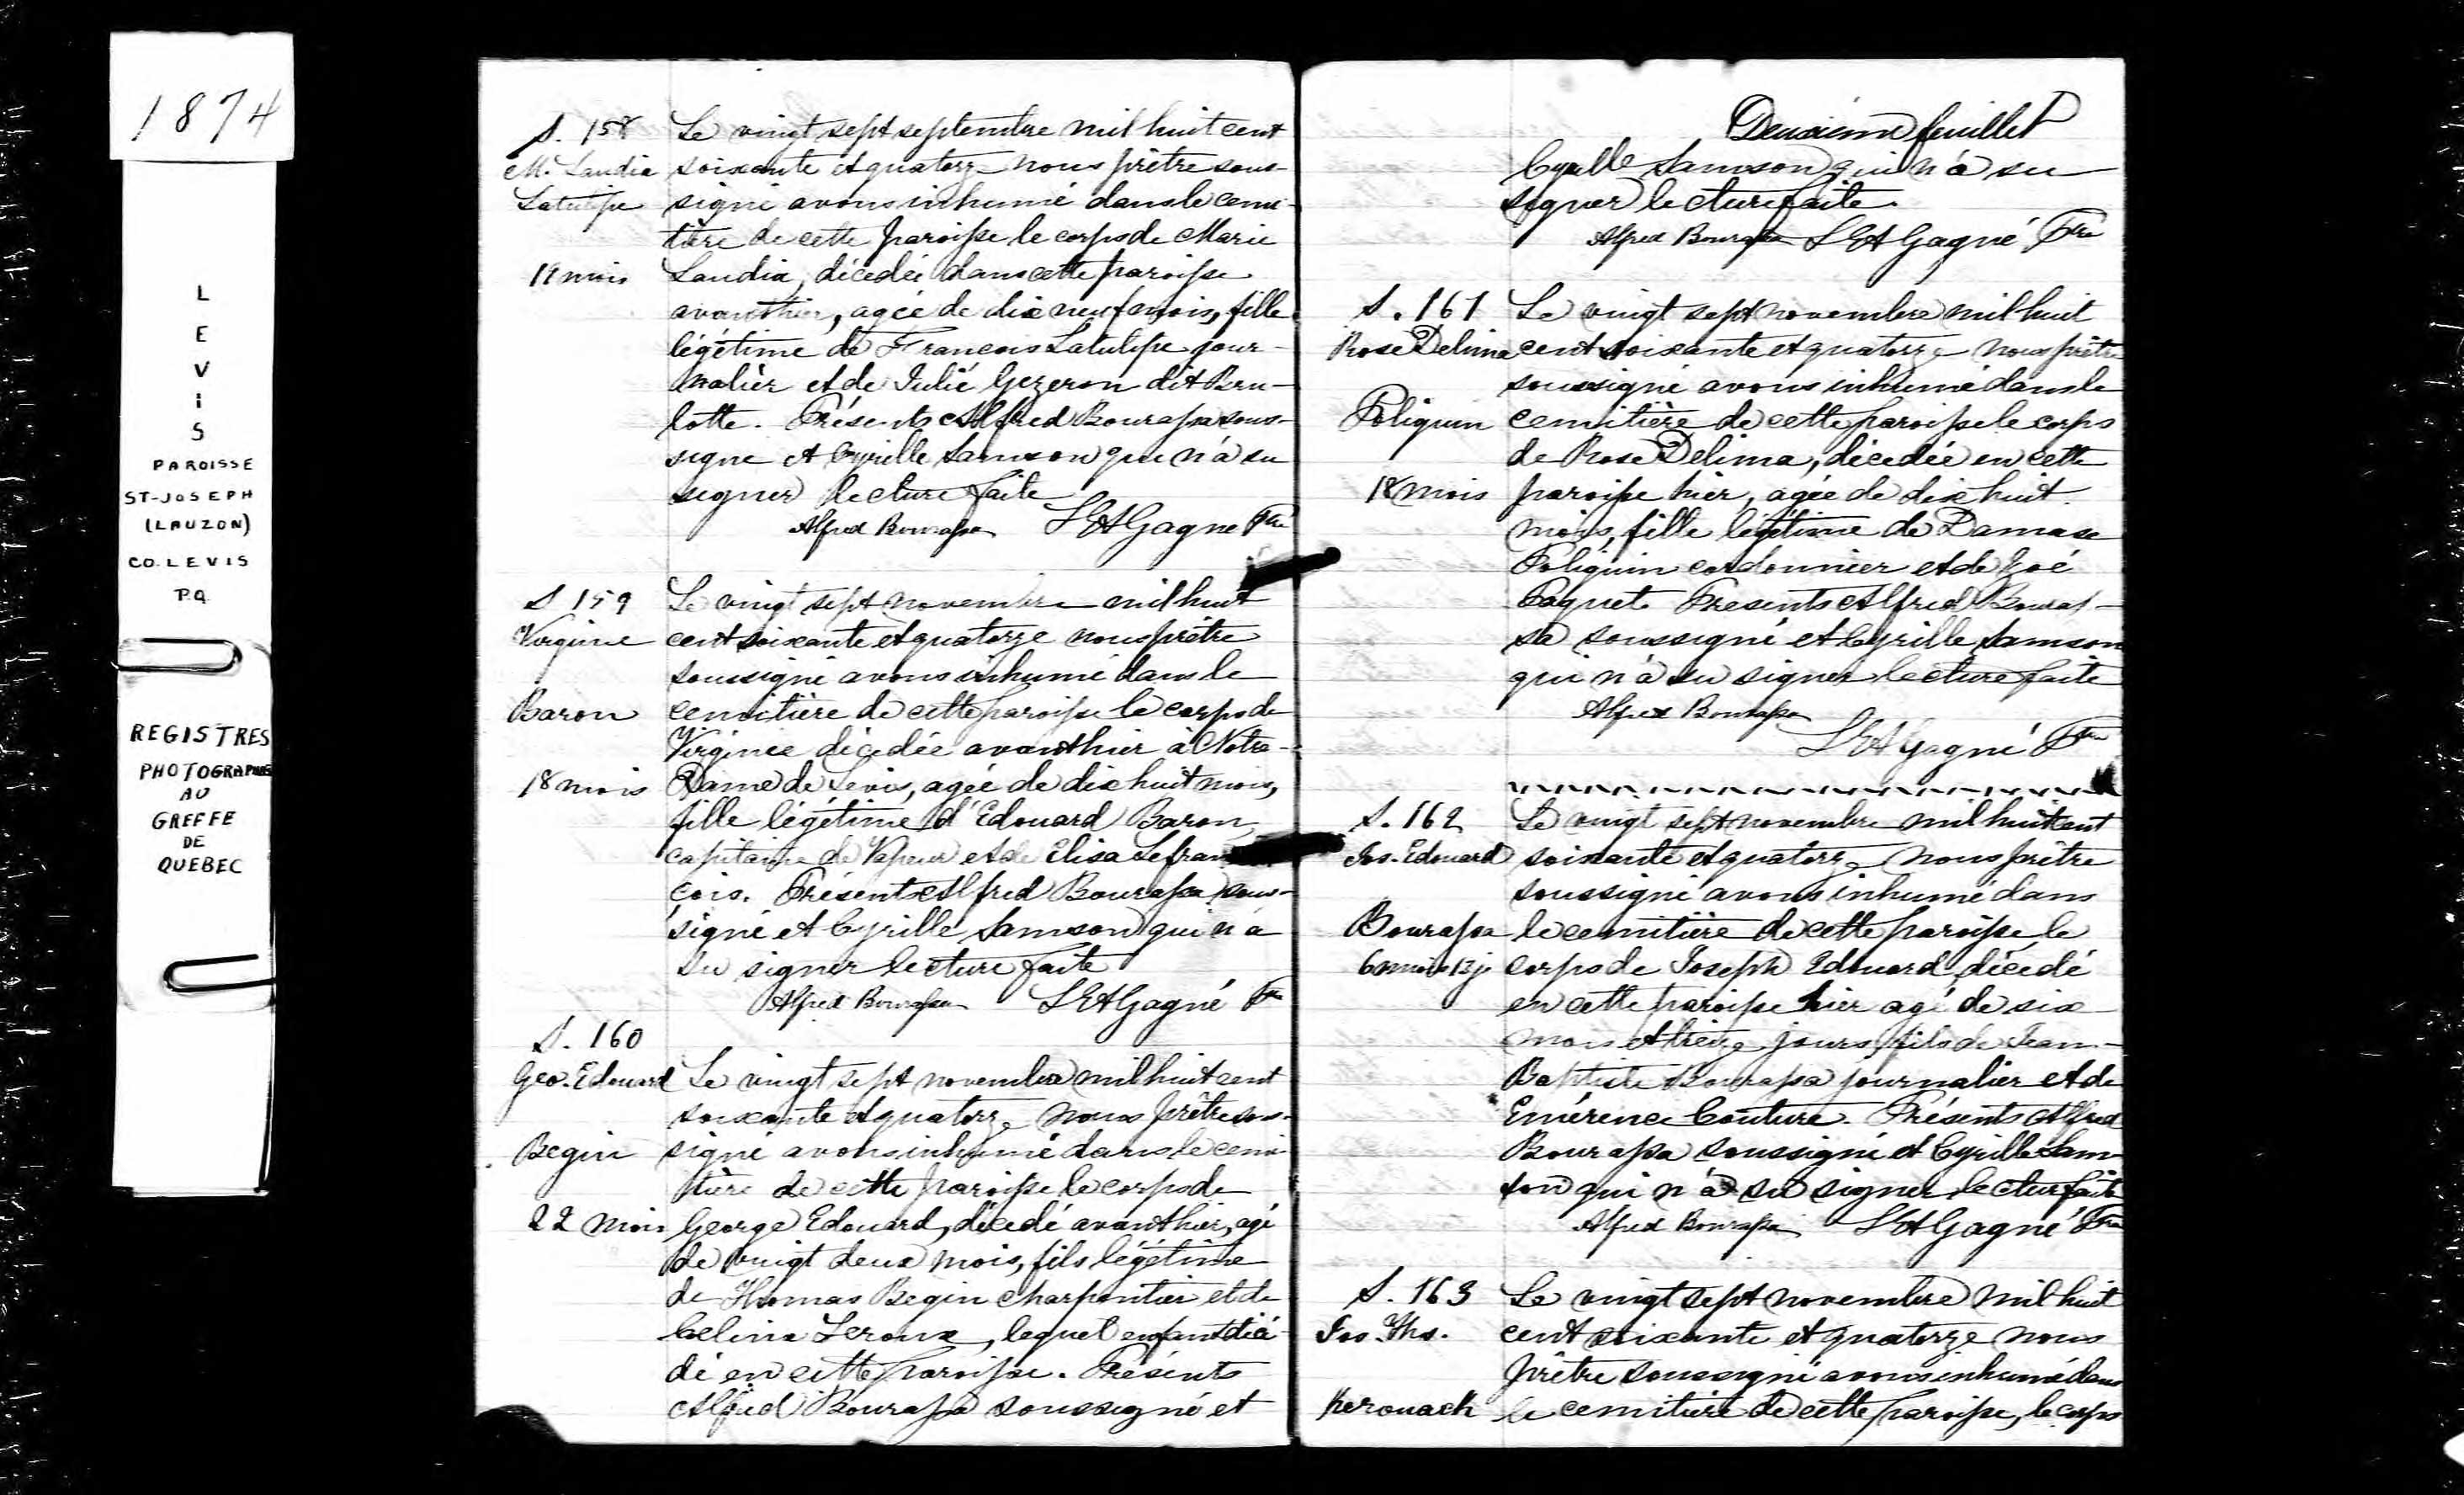 1874
L
E
V
I
S
PAROISSE
ST-JOSEPH
(LAUZON)
CO. LEVIS
P.Q.
REGISTRES
PHOTOGRAPHIÉS
AU
GREFFE
DE
QUEBEC
S. 158
M. Laudia
Latulipe
19 mois
Le vingt sept septembre mil huit cent
soixante et quatorze nous prêtre sous-
signé avons inhumé dans le cemi-
tière de cette paroisse le corps de Marie
Laudia, décedée dans cette paroisse
avanthier, agée de dix neuf mois, fille
légétime de Francois Latulipe jour-
nalier et de Julie Gezeron dit Bru-
lotte. Présents Alfred Bourassa sous-
signe et Cyrille Samson qui n'a su
signer lecture faite
Alfred Bourassa LEAGagné Ptre
S 159
Virginie
Baron
18 mois
Le vingt sept novembre mil huit
cent soixante et quatorze nous prêtre
soussigné avons inhumé dans le
cemitière de cette paroisse le corps de
Virginie décedée avanthier à Notre-
Dame de Levis, agée de dix huit mois,
fille légétime d'Edouard Baron
capitaine de Vapeur et de Elisa Lefran
cois. Présents Alfred Bourassa sous-
signé et Cyrille Samson qui n'a
su signer lecture faite
Alfred Bourassa LEAGagné Ptre
S. 160
Geo. Edouard
Begin
22 mois
Le vingt sept novembre mil huit cent
soixante et quatorze nous prêtre sous-
signé avons inhumé dans le cemi-
tière de cette paroisse le corps de
George Edouard, décedé avanthier, agé
de vingt deux mois, fils légétime
de Thomas Begin charpentier et de
Celina Leroux, lequel enfant décé-
dé en cette paroisse. Présents
Alfred Bourassa soussigné et
Deuxième feuillet
Cyrille Samson qui n'a su
signer lecture faite.
Alfred Bourassa LEAGagné Ptre
S. 161
Rose Delima
Poliquin
18 mois
Le vingt sept novembre mil huit
cent soixante et quatorze nous prêtre
soussigné avons inhumé dans le
cemitière de cette paroisse le corps
de Rose Delima, décedée en cette
paroisse hier, agée de dix huit
mois, fille légétime de Damase
Poliquin cordonnier et de Zoé
Paquet. Presents Alfred Bouras-
sa soussigné et Cyrille Samson
qui n'a su signer lecture faite
Alfred Bourassa
LEAGagné Ptre
S. 162
Jos. Edouard
Bourassa
6 mois 13 j.
Le vingt sept novembre mil huit cent
soixante et quatorze nous prêtre
soussigné avons inhumé dans
le cemitière de cette paroisse le
corps de Joseph Edouard décedé
en cette paroisse hier agé de six
mois et treize jours, fils de Jean-
Baptiste Bourassa journalier et de
Emérence Couture. Présents Alfred
Bourassa soussigné et Cyrille Sam-
son qui n'a su signer lecture faite
Alfred Bourassa LEAGagné Ptre
S. 163
Jos. Ths.
Kerouack
Le vingt sept novembre mil huit
cent soixante et quatorze nous
prêtre soussigné avons inhumé dans
le cemitière de cette paroisse, le corps